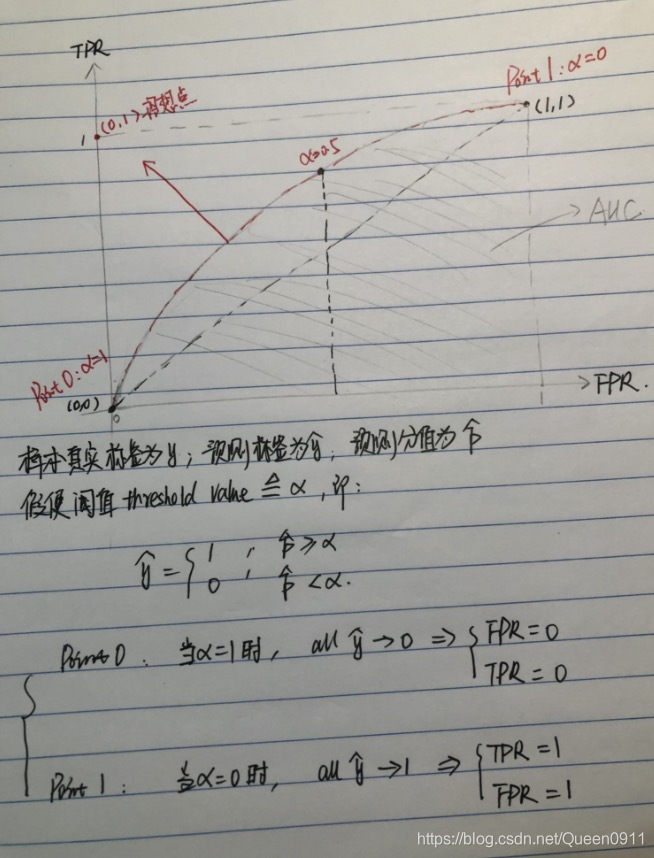 TPR
Point 1: α=0
(0,1) 理想点
1
(1,1)
α=0.5
AUC
Point 0: α=1
(0,0)
0
FPR.
样本真实标签为y; 预测标签为ŷ; 预测分值为p̂
假使阈值 threshold value ≜ α, 即:
ŷ = { 1 ; p̂ ≥ α
0 ; p̂ < α.
Point 0: 当α=1时, all ŷ → 0 ⇒ { FPR = 0
TPR = 0
Point 1: 当α=0时, all ŷ → 1 ⇒ { TPR = 1
FPR = 1
https://blog.csdn.net/Queen0911